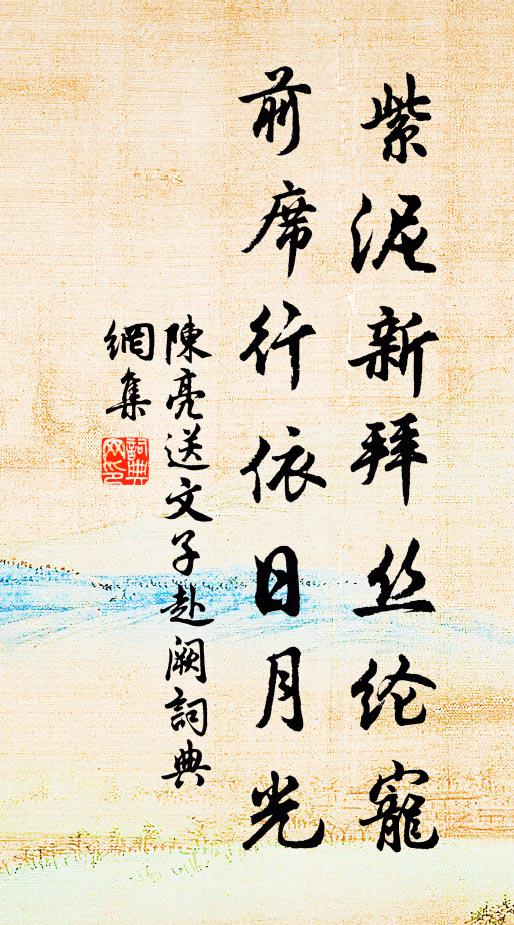 紫泥新拜丝纶寵
前席行依日月光
陳亮送文子赴阙詞典
網集
詞典网印